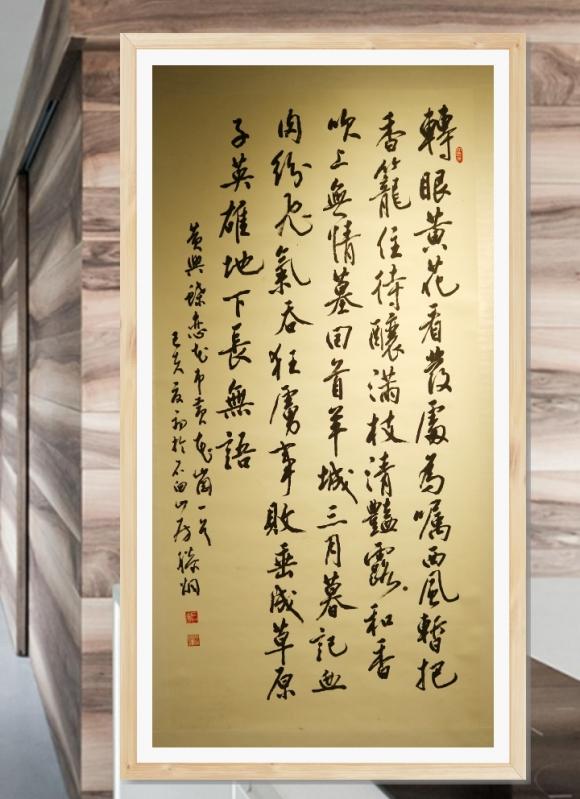 轉眼黄花看發處為嘱西風暫把
香籠住待釀滿枝清豔露和香
吹上無情墓回首羊城三月暮記血
肉紛飛氣吞狂虜事敗垂成草原
子英雄地下長無語
黄興蝶恋花吊黄花崗一
己亥夏初於石田山房